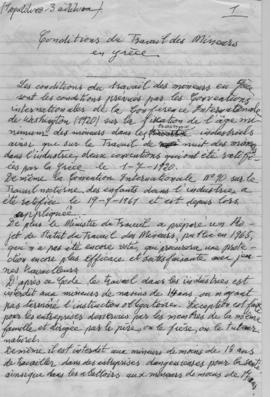 1
Conditions du Travail des Mineurs
en Grèce
Les conditions du travail des mineurs en Grèce
sont les conditions prévues par les Conventions
internationales de la Conférence Internationale
de Washington (1920) sur la fixation de l'âge mi-
nimum des mineurs dans les industriels
ainsi que sur le Travail de nuit des mineurs
dans l'industrie, deux conventions qui ont été ratifi-
ées par la Grèce le 1-7-1920.
De même la Convention Internationale No 90 sur le
Travail nocturne des enfants dans l'industrie a
été ratifiée le 19-4-1961 et est depuis lors
appliquée.
De plus le Ministre du Travail a préparé un Pro-
jet de Statut du Travail des Mineurs, publié en 1965,
qui n'a pas été encore voté, qui prévoira une protec-
tion encore plus efficace et satisfaisante aux jeu-
nes travailleurs.
D'après ce texte le travail dans les industries est
interdit aux mineurs de moins de 14 ans ou n'ayant
pas terminé l'instruction obligatoire. Exception est faite
pour les entreprises desservies par les membres de la même
famille et dirigée par le père, ou le frère, ou le tuteur
naturel.
De même, il est interdit aux mineurs de moins de 18 ans
de travailler dans des entreprises dangereuses pour la santé
ainsi que dans les ateliers aux mineurs de moins de ans